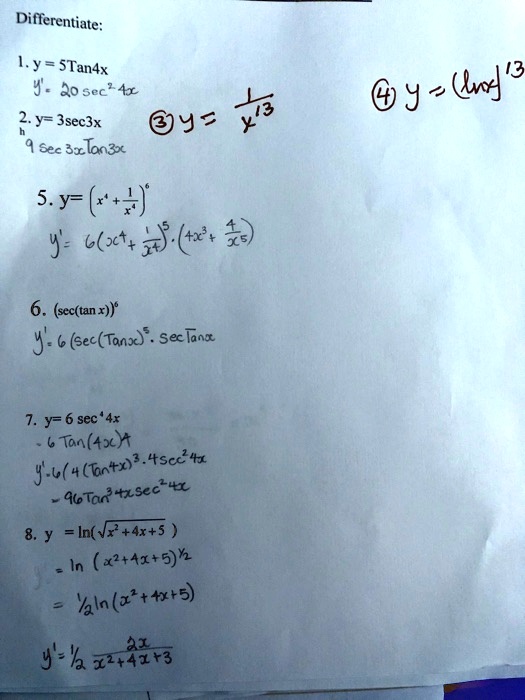 Differentiate:
1. y = 5Tan4x
y'= 20 sec² 4x
2. y= 3sec3x
h
9 sec 3x Tan3x
③ y = 1/x^13
④ y = (lnx)^13
5. y= (x⁴ + 1/x⁴)⁶
y'= 6(x⁴+ 1/x⁴)⁵.(4x³+ 4/x⁵)
6. (sec(tan x))⁶
y'= 6 (sec(Tanx)⁵. secTanx
7. y= 6 sec⁴4x
= 6 Tan(4x)4
y'=6(4(Tan4x)³.4sec²4x
= 96Tan³4xsec²4x
8. y = ln(√x²+4x+5 )
= ln (x²+4x+5)½
= ½ln(x²+4x+5)
y'= ½ 2x/x²+4x+3